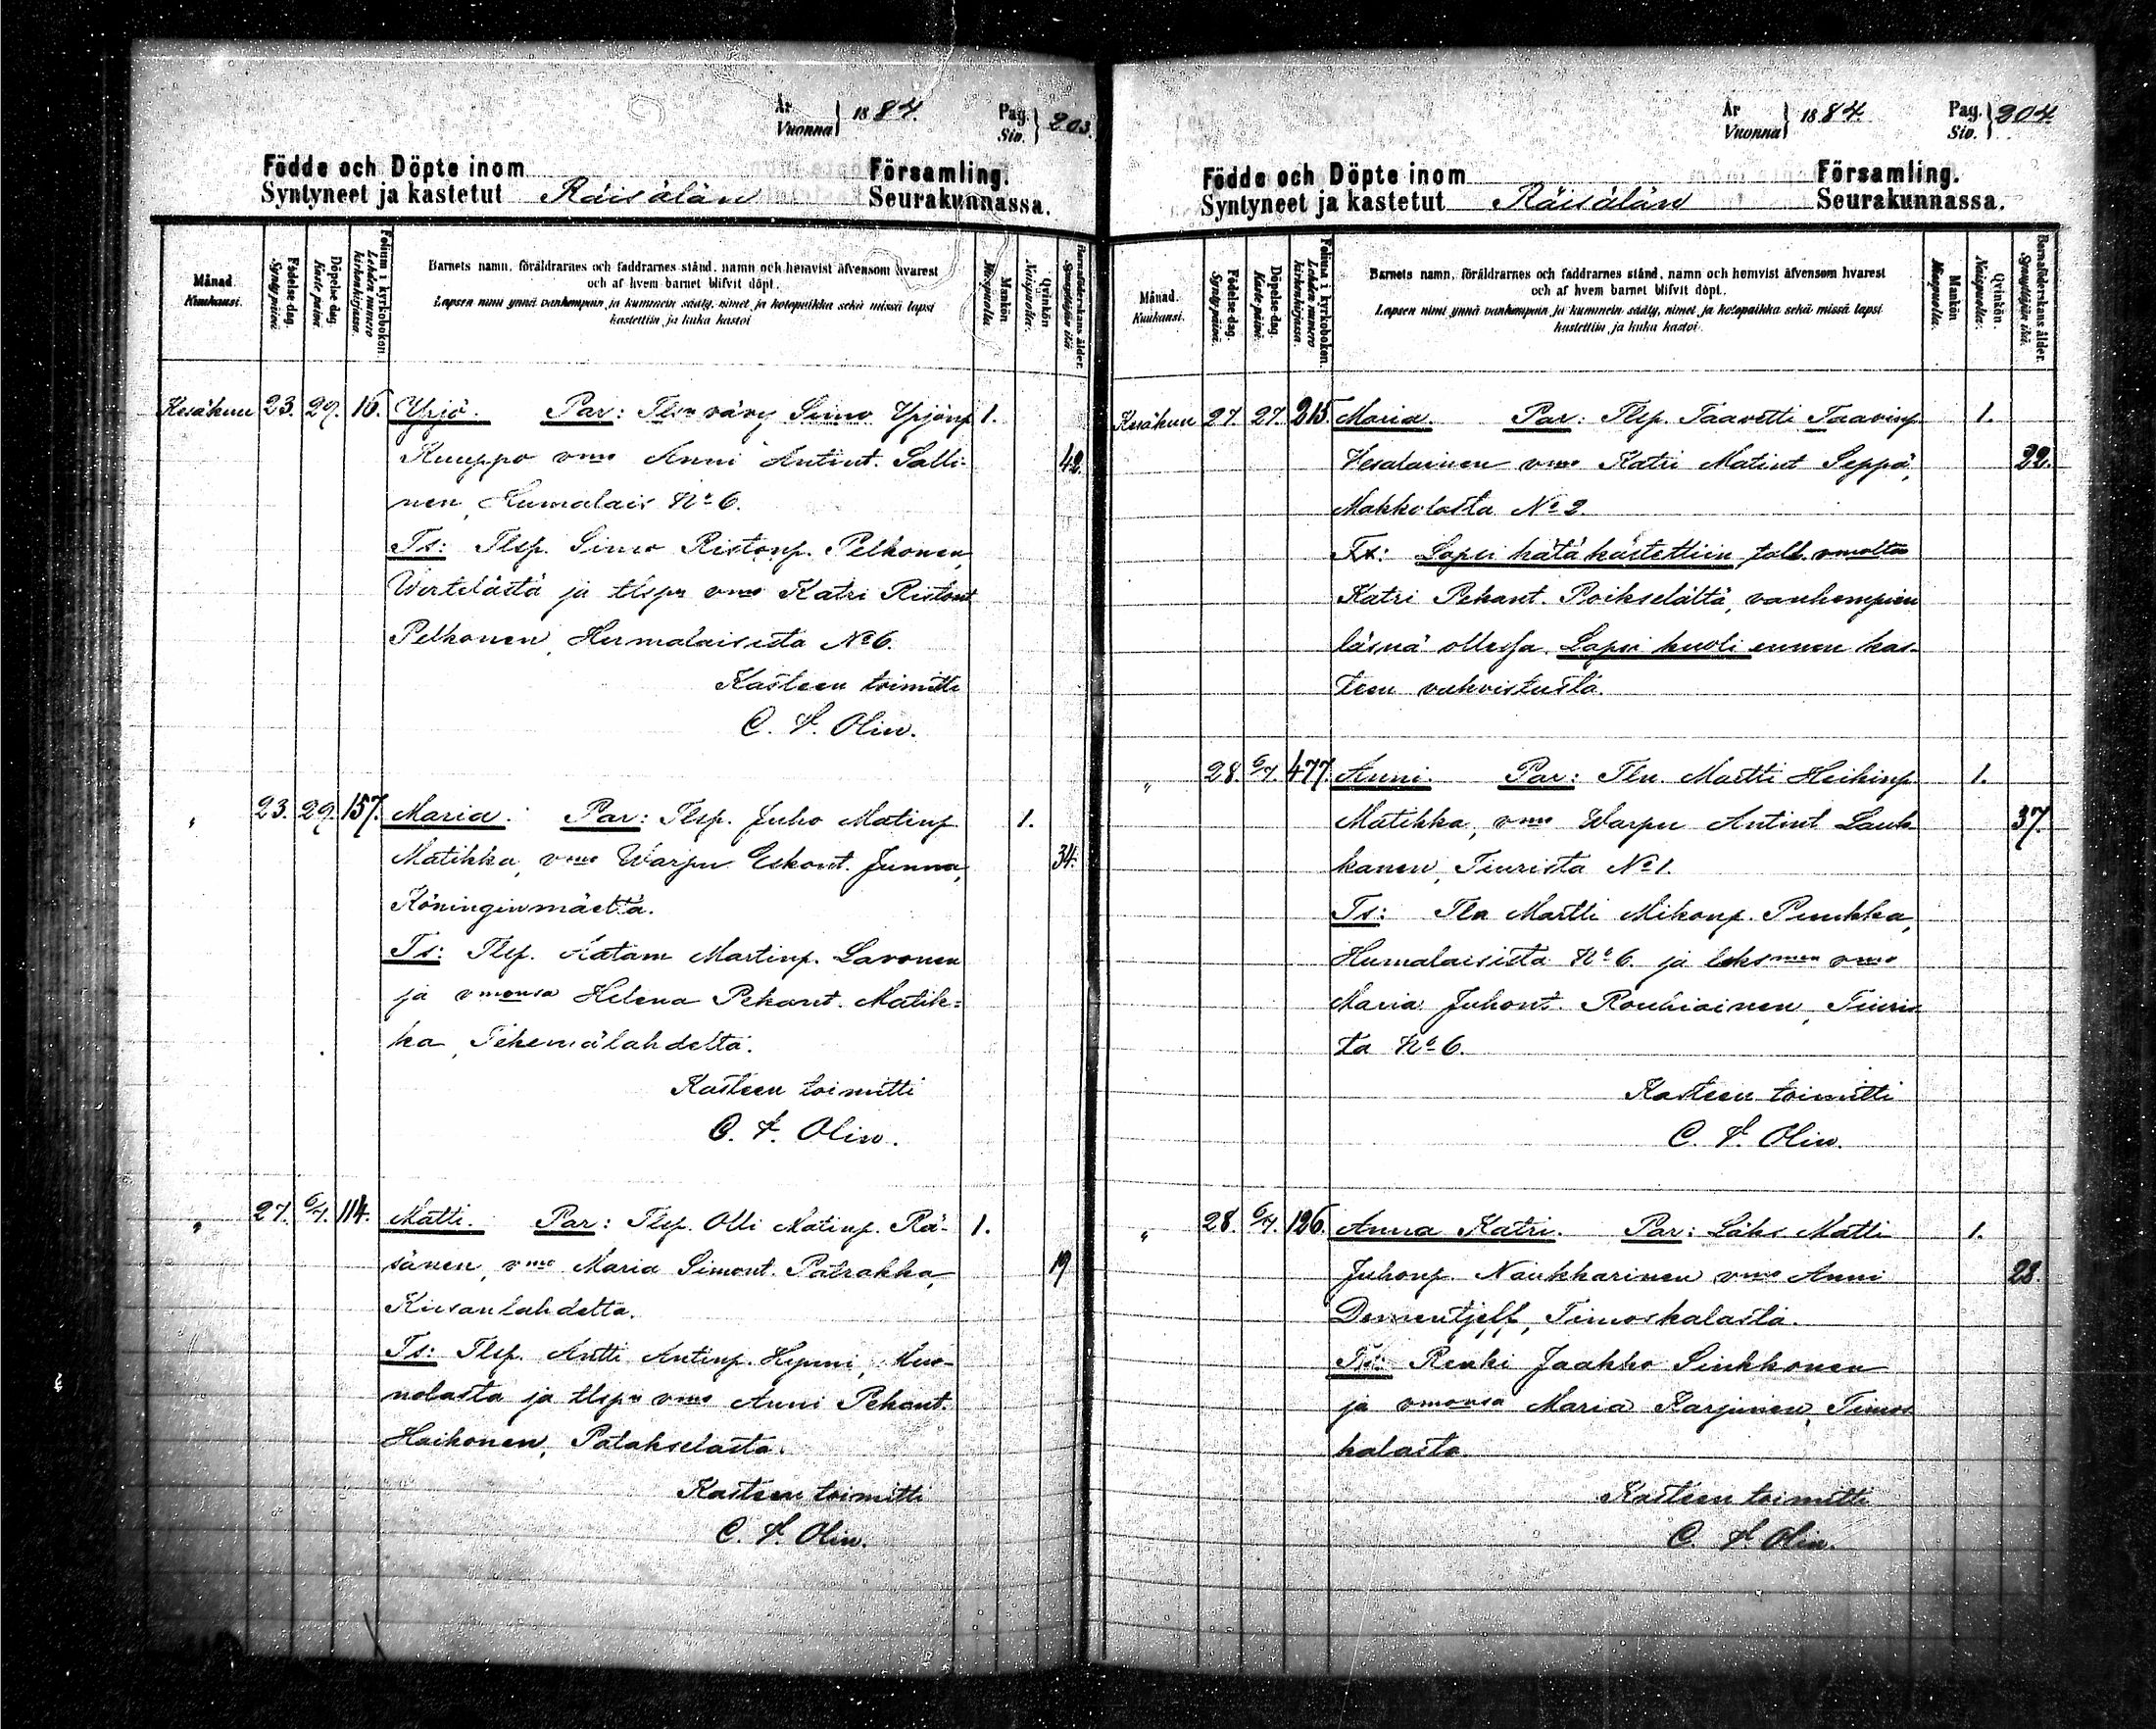 År
Vuonna } 1884. Pag.
Siv. } 203.
Födde och Döpte inom Församling.
Syntyneet ja kastetut Räisälän Seurakunnassa.
Månad.
Kuukausi.
Födelse-dag.
Syntypäivä.
Döpelse-dag.
Kaste päivä.
Folium i kyrkoboken
Lehden numero
kirkonkirjassa.
Barnets namn, föräldrarnes och faddrarnes stånd, namn och hemvist äfvensom hvarest
och af hvem barnet blifvit döpt.
Lapsen nimi ynnä vanhempain ja kummein sääty, nimet ja kotopaikka sekä missä lapsi
kastettiin ja kuka kastoi
Mankön
Miespuolia.
Qvinkön
Naispuolia.
Barnaföderskans ålder.
Synnyttäjän ikä.
Kesäkuu 23. 29. 16. Yrjö. Par: Tlsn vävy Simo Yrjönp 1.
Kuuppo vmo Anni Antint. Salli- 42.
nen, Humalais No 6.
Ts: Tlsp. Simo Ristonp. Pelkonen,
Wertelästä ja tlspn vmo Katri Ristont
Pelkonen, Humalaisista No 6.
Kasteen toimitti
C. F. Olin.
" 23. 29. 157. Maria. Par: Tlsp. Juho Matinp 1.
Matikka, vmo Warpu Eskont. Junna, 34.
Köninginmäeltä.
Ts: Tlsp. Aatam Martinp. Lavonen
ja vmonsa Helena Pekant. Matik-
ka, Tehemälahdelta.
Kasteen toimitti
C. F. Olin.
" 27. 6/7. 114. Matti. Par: Tlsp. Olli Matinp. Rä- 1.
sänen, vmo Maria Simont. Patrakka, 19
Kiisanlahdelta.
Ts: Tlsp. Antti Antinp. Hynni,
nolasta ja tlspn vmo Anni Pekant.
Haikonen, Palakselasta.
Kasteen toimitti
C. F. Olin.
År
Vuonna } 1884. Pag.
Siv. } 204.
Födde och Döpte inom Församling.
Syntyneet ja kastetut Räisälän Seurakunnassa.
Månad.
Kuukausi.
Födelse-dag.
Syntypäivä.
Döpelse-dag.
Kaste päivä.
Folium i kyrkoboken.
Lehden numero
kirkonkirjassa.
Barnets namn, föräldrarnes och faddrarnes stånd, namn och hemvist äfvensom hvarest
och af hvem barnet blifvit döpt.
Lapsen nimi ynnä vanhempain ja kummein sääty, nimet ja kotopaikka sekä missä lapsi
kastettiin ja kuka kastoi.
Mankön
Miespuolia.
Qvinkön.
Naispuolia.
Barnaföderskans ålder.
Synnyttäjän ikä.
Kesäkuu 27. 27. 215. Maria. Par: Tlsp. Taavetti Taavinp. 1.
Vesalainen vmo Katri Matint Seppä, 22.
Makkolasta No 2.
Ts: Lapsi hätäkastettiin tall. vmolta
Katri Pekant. Poikselältä, vanhempien
läsnä ollessa. Lapsi kuoli ennen kas-
teen vahvistusta.
" 28. 6/7. 477. Anni. Par: Tln. Martti Heikinp. 1.
Matikka, vmo Warpu Antint Lauk- 37.
kanen, Tiurista No 1.
Ts: Tln Martti Mikonp. Puukka,
Humalaisista No 6. ja loksmen vmo
Maria Juhont. Rouhiainen, Tiuris-
ta No 6.
Kasteen toimitti
C. F. Olin.
" 28. 6/7. 126. Anna Katri. Par: Läks Matti 1.
Juhonp. Naukkarinen vmo Anni 28.
Dementjeff, Timoskalasta.
Ts: Renki Jaakko Sinkkonen
ja vmonsa Maria Karjunen, Timos
kalasta.
Kasteen toimitti
C. F. Olin.